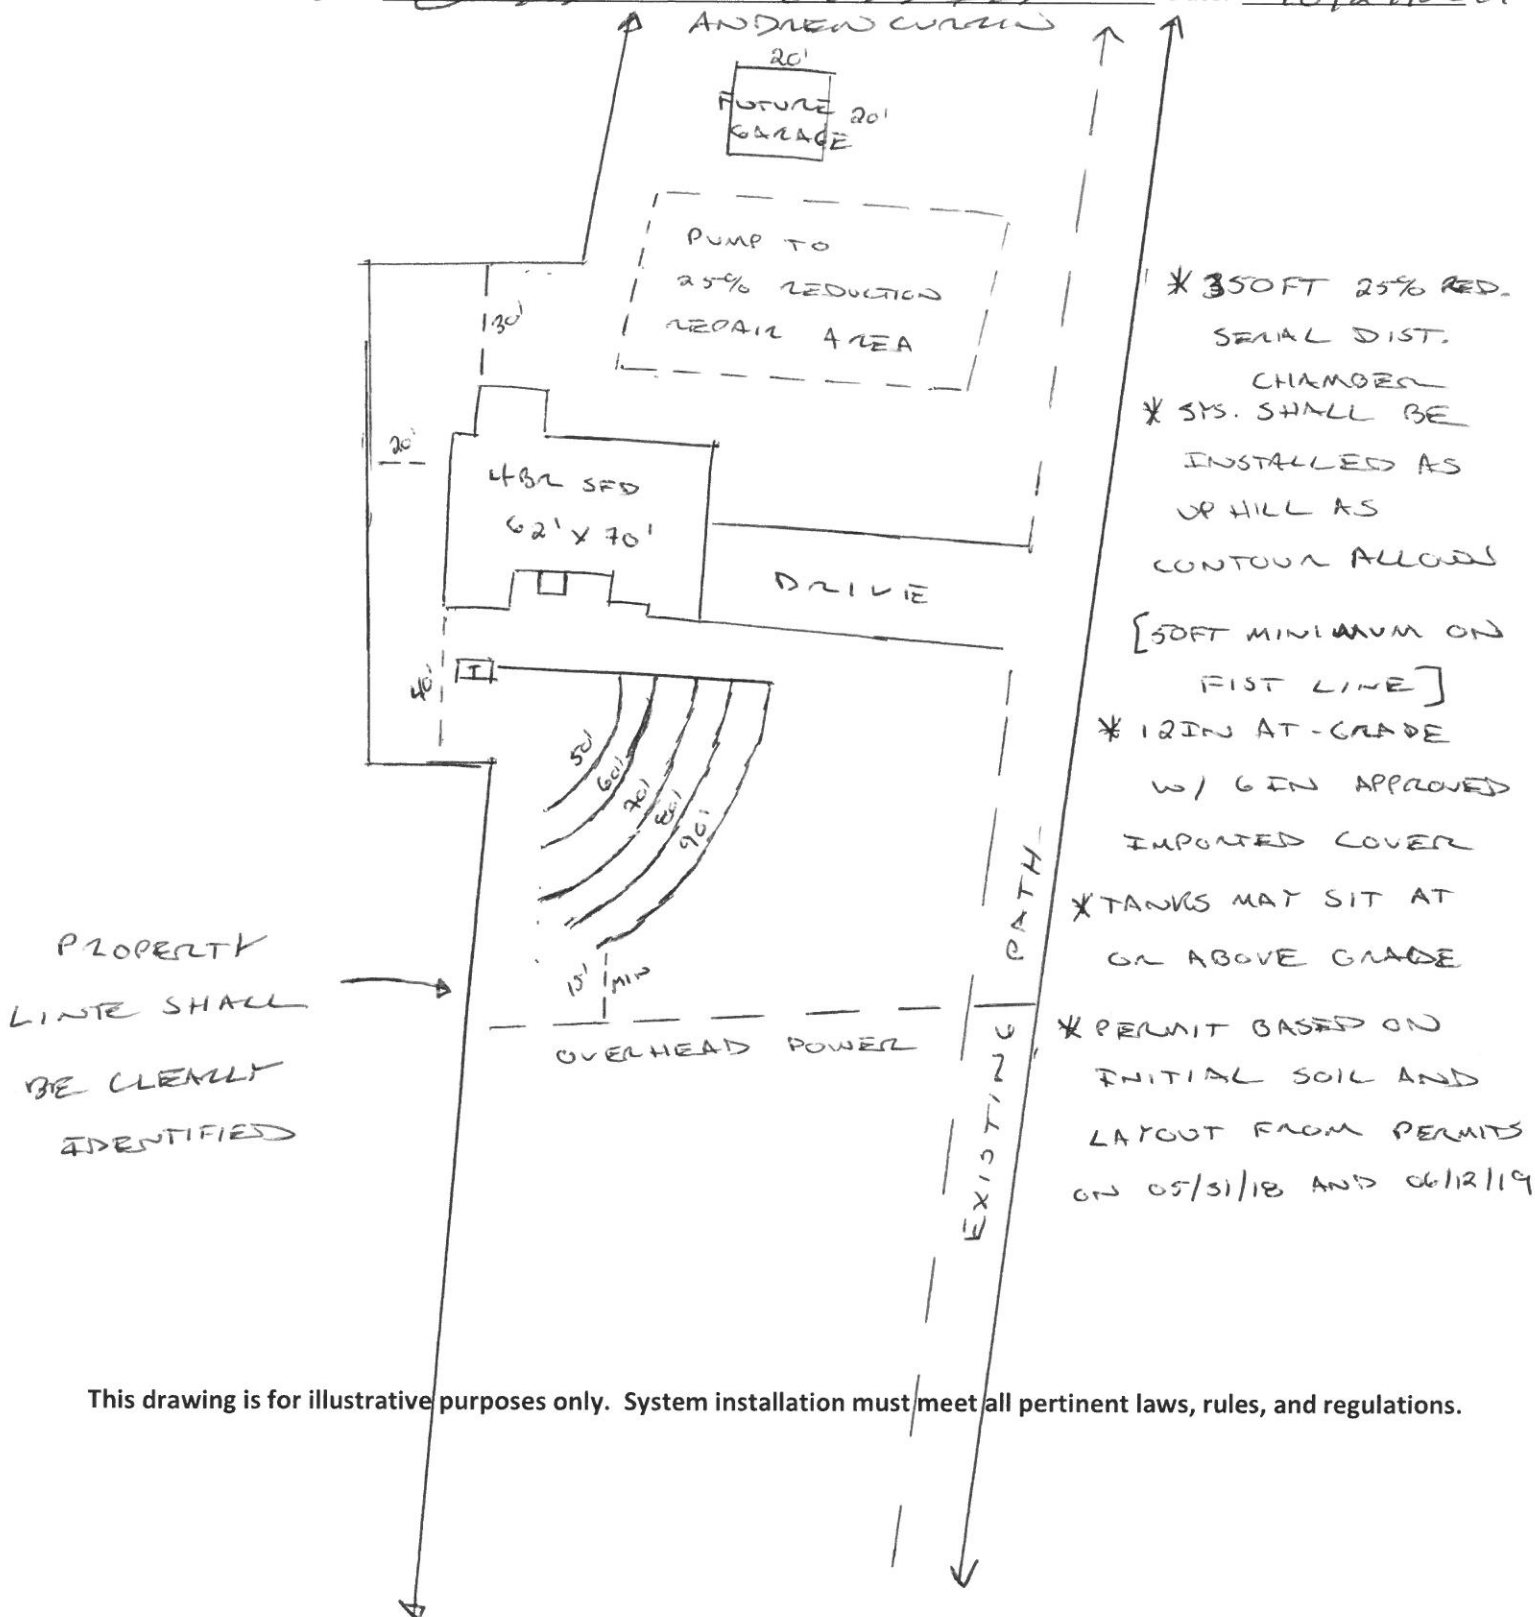 ANDREW CURRIN
20'
FUTURE 20'
GARAGE
PUMP TO
25% REDUCTION
REPAIR AREA
30'
20'
4BR SFD
62' X 70'
DRIVE
T
40'
50'
60'
70'
80'
90'
15' MIN
OVERHEAD POWER
EXISTING PATH
PROPERTY
LINTE SHALL
BE CLEARLY
IDENTIFIED
* 350FT 25% RED.
SERIAL DIST.
CHAMBER
* SYS. SHALL BE
INSTALLED AS
UP HILL AS
CONTOUR ALLOWS
[50FT MINIMUM ON
FIST LINE]
* 12IN AT-GRADE
W/ 6IN APPROVED
IMPORTED COVER
* TANKS MAY SIT AT
OR ABOVE GRADE
* PERMIT BASED ON
INITIAL SOIL AND
LAYOUT FROM PERMITS
ON 05/31/18 AND 06/12/19
This drawing is for illustrative purposes only. System installation must meet all pertinent laws, rules, and regulations.